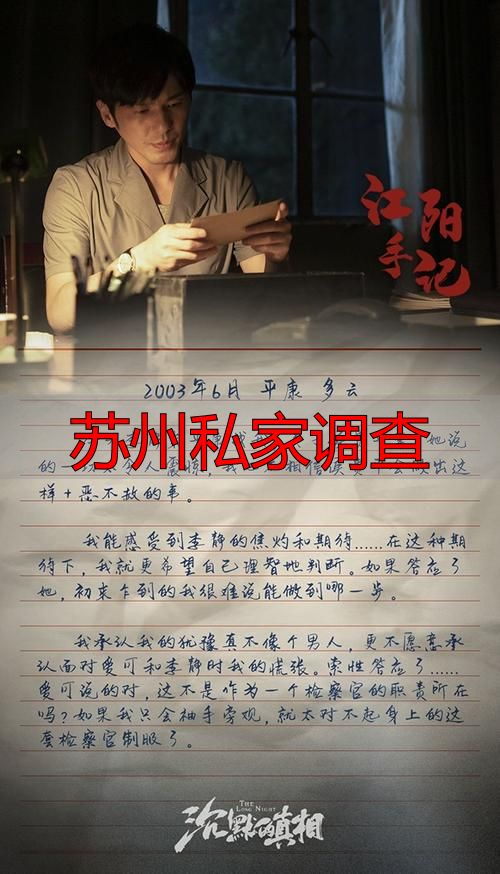 江阳
手记
2003年6月 平康 多云
苏州私家调查
她说
的一
人震惊，我
相信
会做出这
样十恶不赦的事。
我能感受到李静的焦灼和期待……在这种期
待下，我就更希望自己理智地判断。如果答应了
她，初来乍到的我很难说能做到哪一步。
我承认我的犹豫真不像个男人，更不愿意承
认面对爱可和李静时我的慌张。索性答应了……
爱可说的对，这不是作为一个检察官的职责所在
吗？如果我只会袖手旁观，就太对不起身上的这
套检察官制服了。
THE
LONG NIGHT
沉默的真相